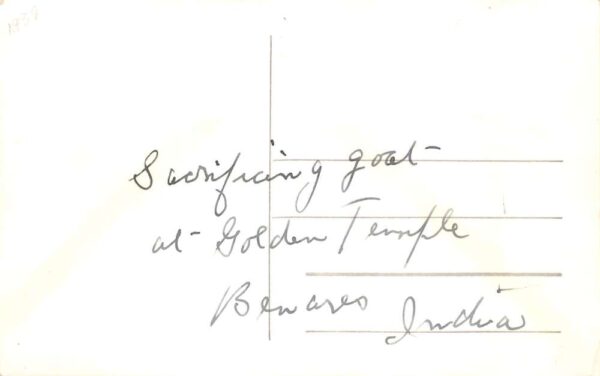 1937
Sacrificing goat
at Golden Temple
Benares India